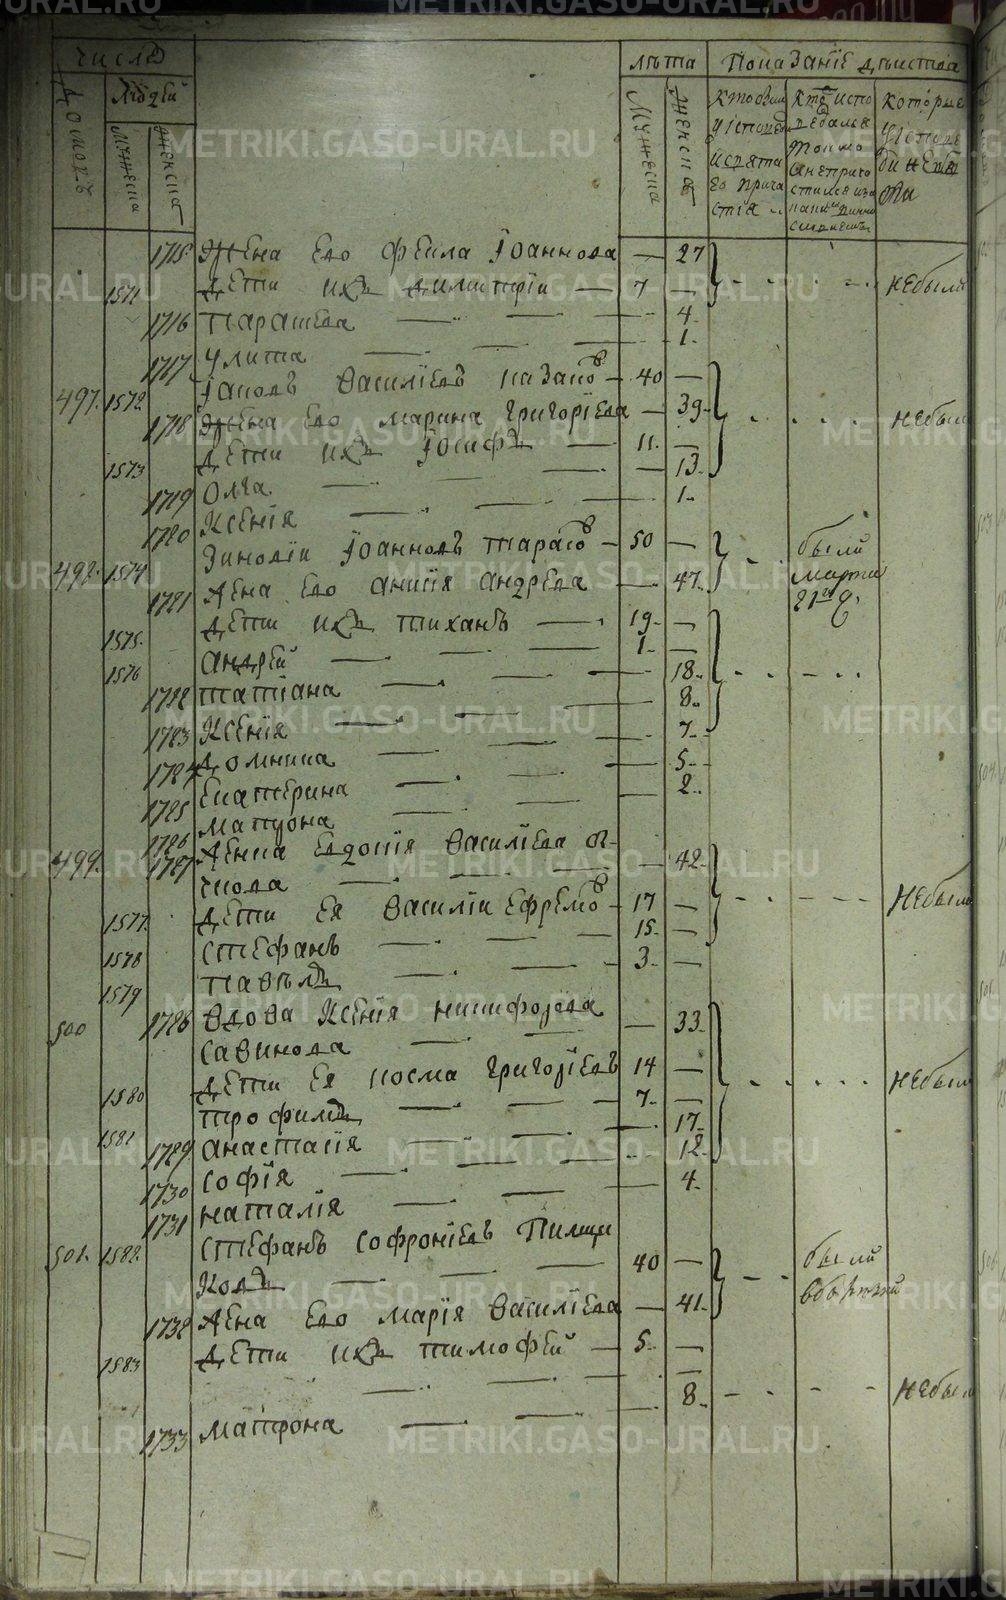 число
лѣта
Показанїе дѣиства
Домовъ
Людей
Мужеска
Женска
Мужеска
Женска
Кто были
у исповѣди
и святаго прича
стїя
Кто испо
вѣдался
токмо
а не прїоб
щился
Которые
у исповѣ
ди не бы
ли
1715 Жена его Феѵла Їоаннова — 27
1571 дѣти ихъ Димитрїи — 7 — небыли
1716 Парасева — 4
1717 Улита — 1
497 1572 Їаковъ Василїевъ Казаковъ — 40 —
1718 Жена его Марина Григорїева — 39 небыли
1573 дѣти ихъ Їосифъ — 11 —
1719 Олга — 13
1720 Ксенїя — 1
498 1574 Зиновїи Їоанновъ Тарасовъ — 50 — были
1721 Жена его Анисїя Андрева — 47 марта
21го Ч.
1575 дѣти ихъ Тиханъ — 19 —
1576 Андрей — 1 —
1722 Татїана — 18
1723 Ксенїя — 8
1724 Домника — 7
1725 Екатерина — 5
1726 Матрона — 2
499 1727 Женка Евдокїя Василїева Ов
чкова — 42
1577 дѣти ея Василїи Ефремовъ — 17 — Небыли
1578 Стефанъ — 15 —
1579 Павелъ — 3 —
500 1728 Вдова Ксенїя Никифорова
Савинова — 33
1580 дѣти ея Косма Григорїевъ 14 — небыли
1581 Трофимъ — 7 —
1729 Анастасїя — 17
1730 Софїя — 12
1731 Наталїя — 4
501 1582 Стефанъ Софронїевъ Пилщи
ковъ — 40 — были
1732 Жена его Марїя Василїева — 41
1583 дѣти ихъ Тимофей — 5 —
8 Небыли
1733 Матрона
METRIKI.GASO-URAL.RU